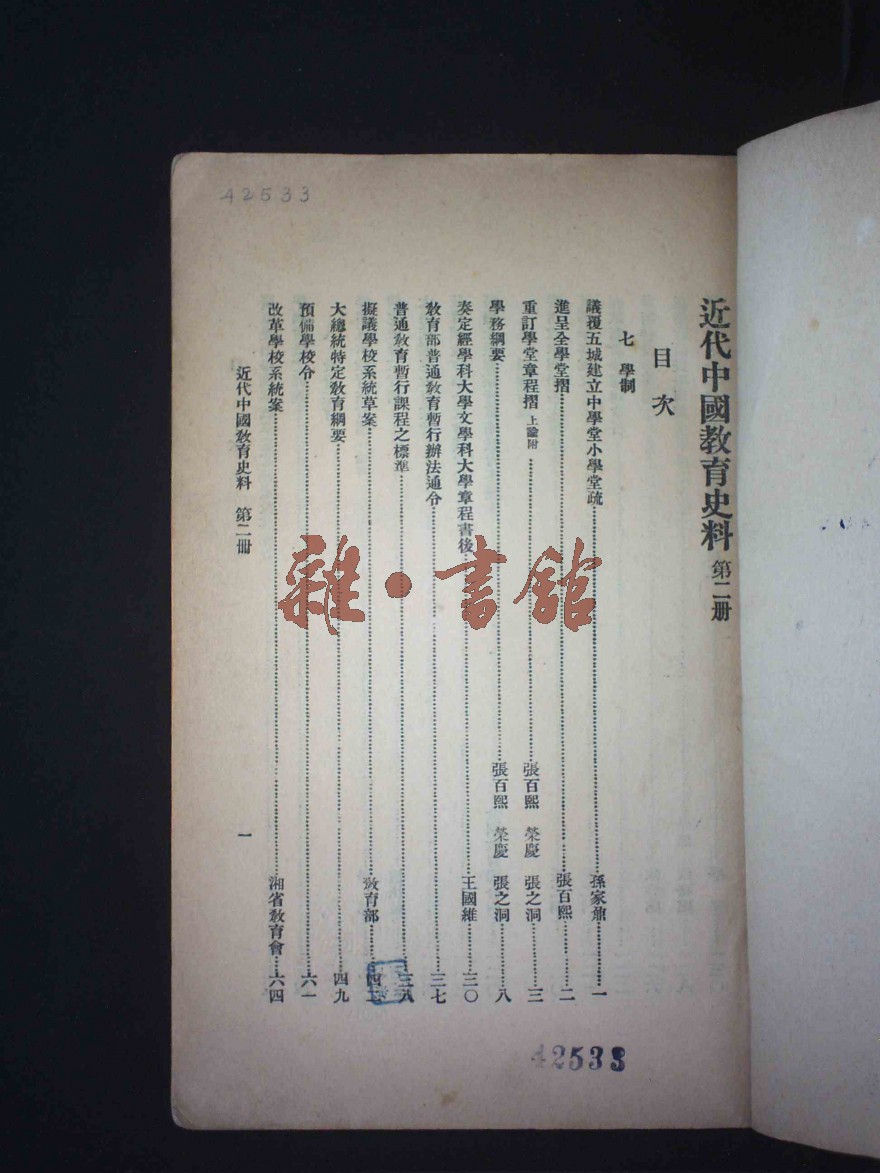 42533
近代中國教育史料 第二册
目次
七 學制
議覆五城建立中學堂小學堂疏……孫家鼐……一
進呈全學堂摺……張百熙……二
重訂學堂章程摺 上諭附……張百熙 榮慶 張之洞……三
學務綱要……張百熙 榮慶 張之洞……八
奏定經學科大學文學科大學章程書後……王國維……三〇
教育部普通教育暫行辦法通令……三七
普通教育暫行課程之標準……三八
擬議學校系統草案……教育部……四二
大總統特定教育綱要……四九
預備學校令……六一
改革學校系統案……湘省教育會……六四
近代中國教育史料 第二册
一
雜·書館
42533